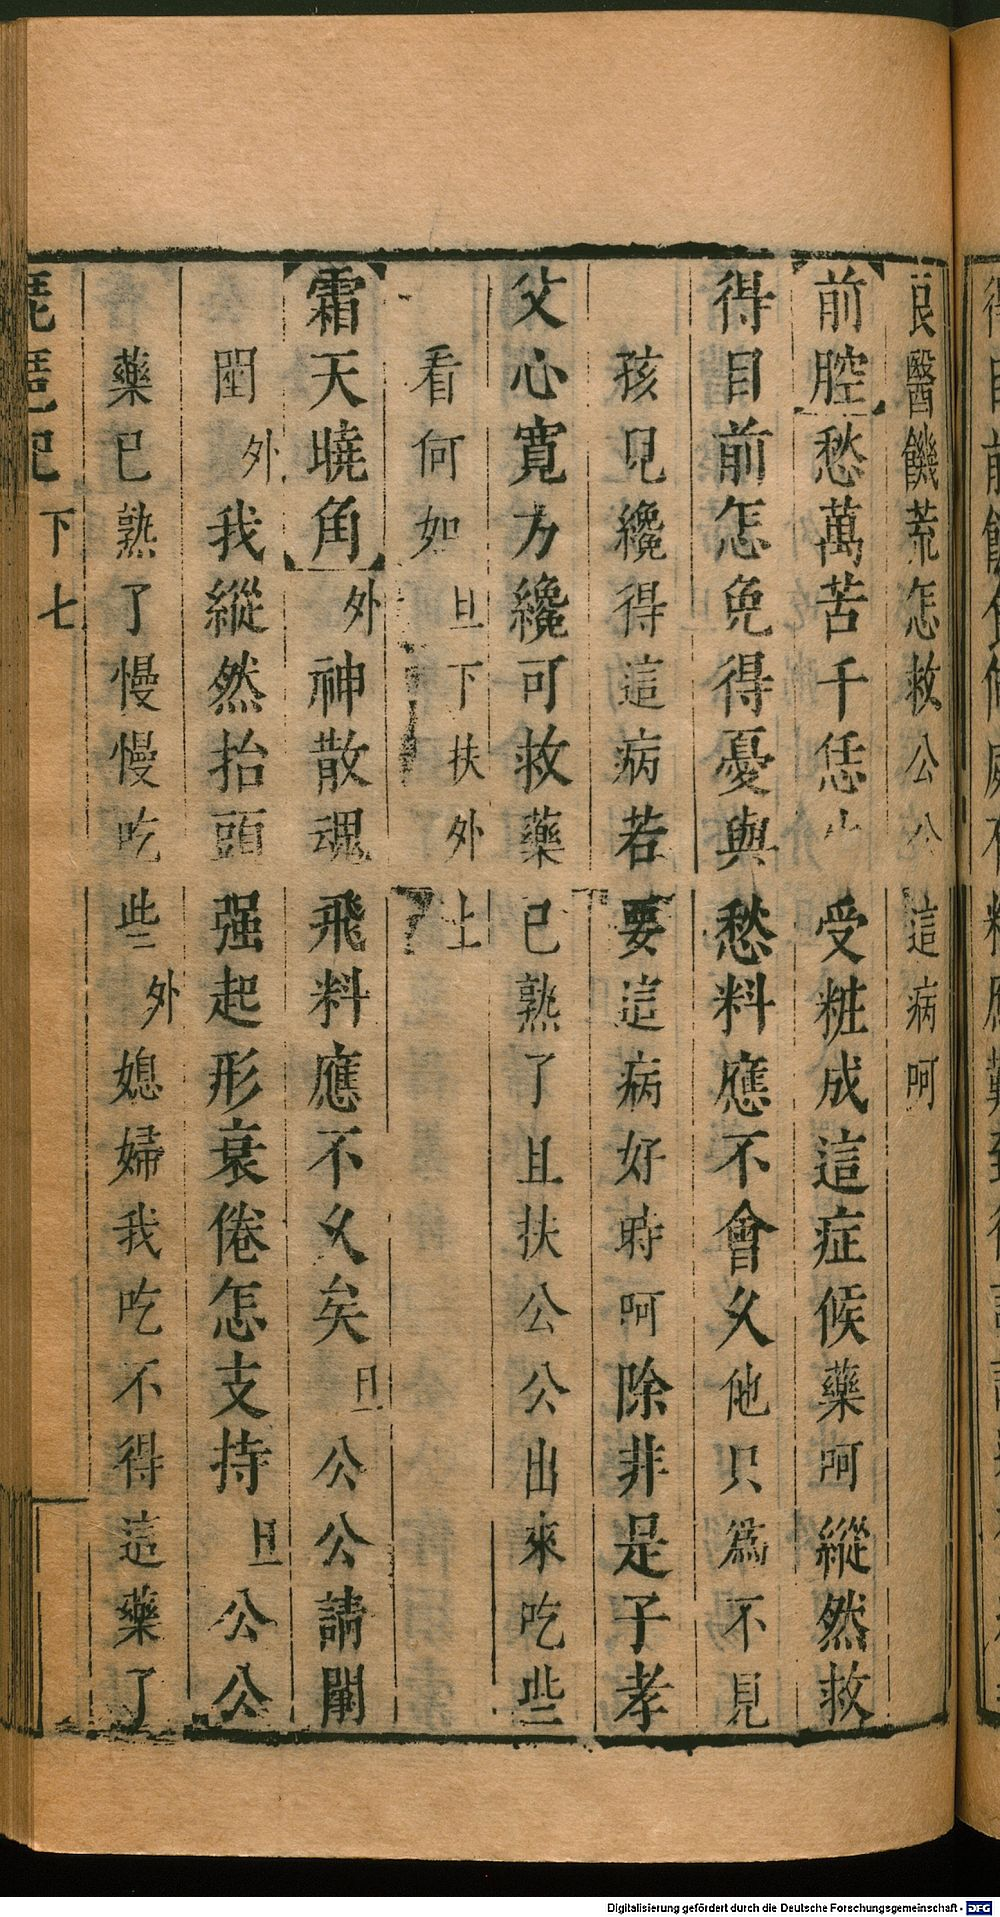 良醫饑荒怎救公公這病呵
前腔愁萬苦千恁生受粧成這症候藥呵縱然救
得目前怎免得憂與愁料應不會久他只爲不見
孩兒纔得這病若要這病好時呵除非是子孝
父心寬方纔可救藥已熟了且扶公公出來吃些
看何如旦下扶外上
霜天曉角外神散魂飛料應不久矣旦公公請闌
圍外我縱然抬頭强起形衰倦怎支持旦公公
藥已熟了慢慢吃些外媳婦我吃不得這藥了
琵琶記 下 七
Digitalisierung gefördert durch die Deutsche Forschungsgemeinschaft - DFG